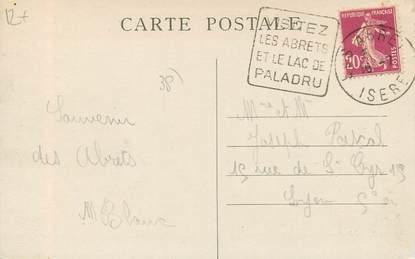 CARTE POSTALE
VISITEZ
LES ABRETS
ET LE LAC DE
PALADRU
REPUBLIQUE FRANCAISE
20c
POSTES
ISERE
38)
Souvenir
des Abrets
M Blanc
Mr et Mme
Joseph Pascal
15 rue de St Cyr 15
Lyon 5e